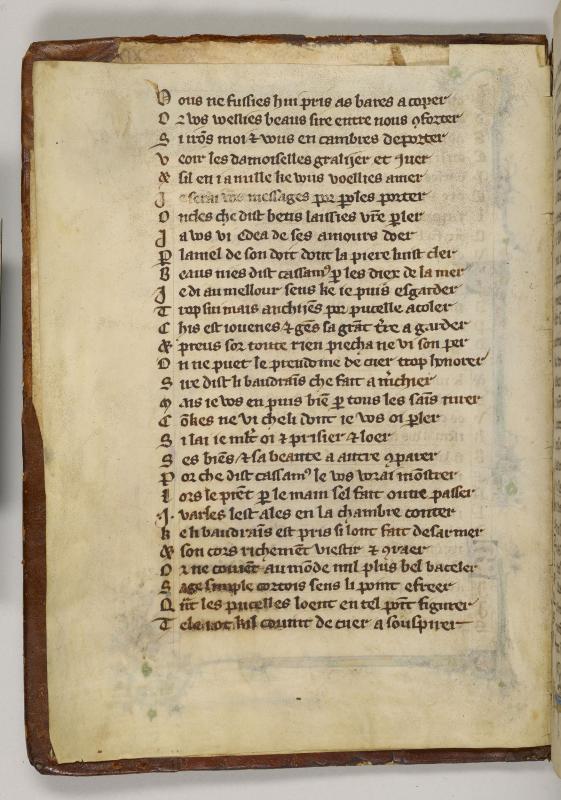 V ous ne fussies hui pris as bares a coper
O r vos vesties beaus sire entre nous ꝯforter
S i irōs moi ⁊ vous en cambres deporter
V eoir les damoiselles gralijer et Juer
& sil en i a nulle ke vous voellies amer
J e serai vos messages por poles porter
O ncles che dist betis laissies vr̄e ꝑler
J a vos vi edea de ses amours doer
P lamel de son doit dont la piere luist cler
B eaus nies dist cassamꝰ ꝑ les diex de la mer
J e di au mellour sens ke ie puis esgarder
T rop sui mais anchiēs por pucelle acoler
C his est iouenes ⁊ gēs sa grāt t̄re a garder
& preus sor toute rien piecha ne vi son per
O n ne puet le preudome de cuer trop honorer
S ire dist li baudrains che fait a m̄chier
M ais ie vos en puis biē ꝑ tous les sains iurer
C ōkes ne vi cheli dont ie vos oi ꝑler
S i lai ie mlt̄ oi ⁊ prisier ⁊ loer
S es biēs ⁊ sa beaute a autre ꝯparer
P or che dist cassamꝰ le vos vorai mōstrer
L ors le prēt ꝑ le main sel fait outre passer
.J. varles lest ales en la chambre conter
K e li baudrains est pris si lont fait desarmer
& son cors richemēt viestir ⁊ ꝯraer
O r ne couiēt au mōde nul plus bel baceler
S age simple cortois sens li point efreer
Q n̄t les pucelles loent en tel poīt figurer
T ele i ot kil couuint de cuer a souspirer